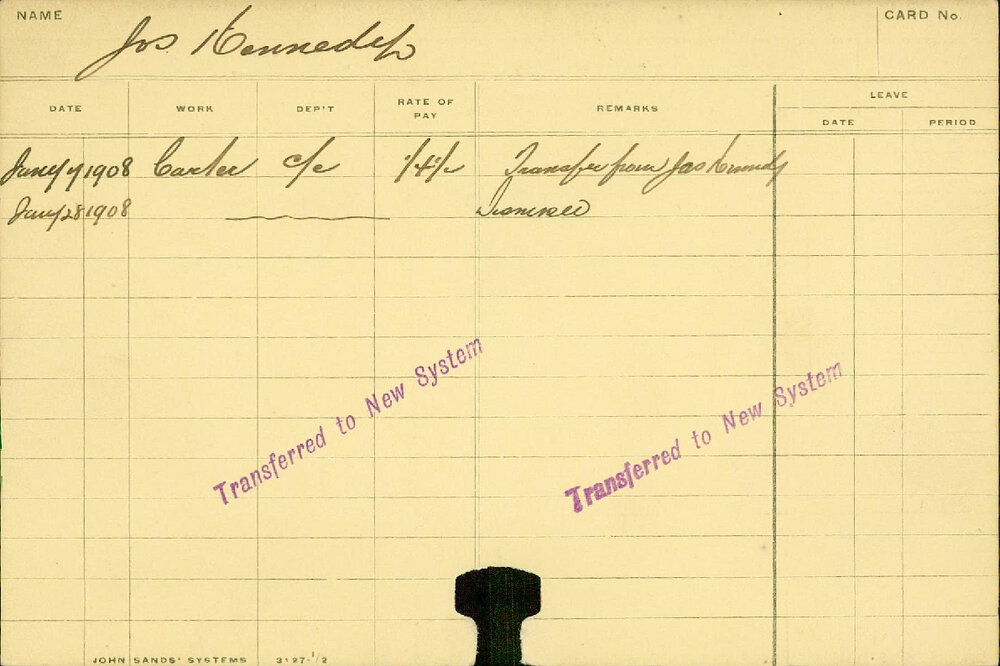 NAME
Jos Kennedy
CARD No.
DATE WORK DEP'T RATE OF PAY REMARKS LEAVE
DATE PERIOD
1908 Carter c/c Transfer from Jas Kennedy
Jany 28 1908 Dismissed
Transferred to New System
Transferred to New System
JOHN SANDS' SYSTEMS 3127-1/2